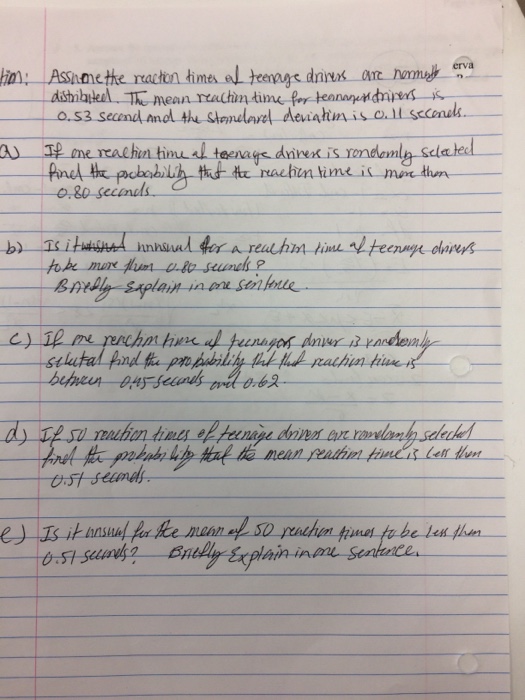 tion: Assume the reaction times of teenage drivers are normally erva
distributed. The mean reaction time for teenager drivers is
0.53 second and the standard deviation is 0.11 seconds.
a) If one reaction time of teenage drivers is randomly selected
find the probability that the reaction time is more than
0.80 seconds.
b) Is it unusual for a reaction time of teenage drivers
to be more than 0.80 seconds?
Briefly explain in one sentence.
c) If one reaction time of teenagers driver is randomly
selected find the probability that that reaction time is
between 0.45 seconds and 0.62.
d) If 50 reaction times of teenage drivers are randomly selected
find the probability that the mean reaction time is less than
0.51 seconds.
e) Is it unsual for the mean of 50 reaction times to be less than
0.51 seconds? Briefly Explain in one sentence.